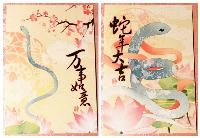 万事如意
蛇年大吉